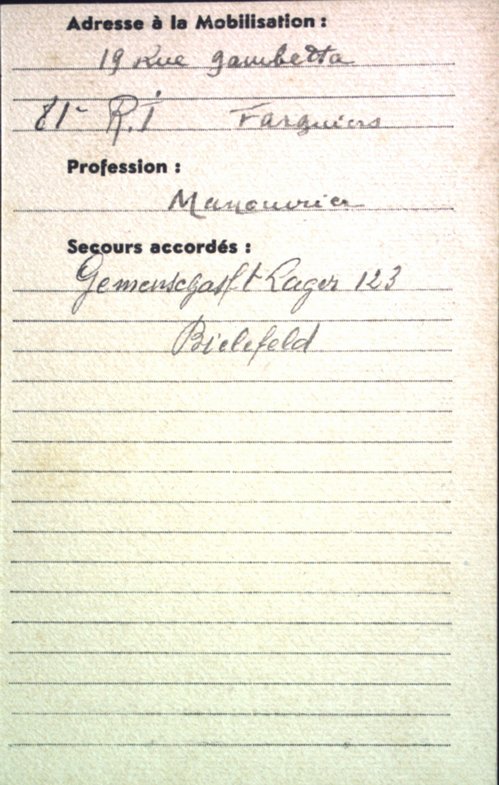 Adresse à la Mobilisation :
19 Rue Gambetta
81e R.I Farguiers
Profession :
Manouvrier
Secours accordés :
Gemenschasft Lager 123
Bielefeld